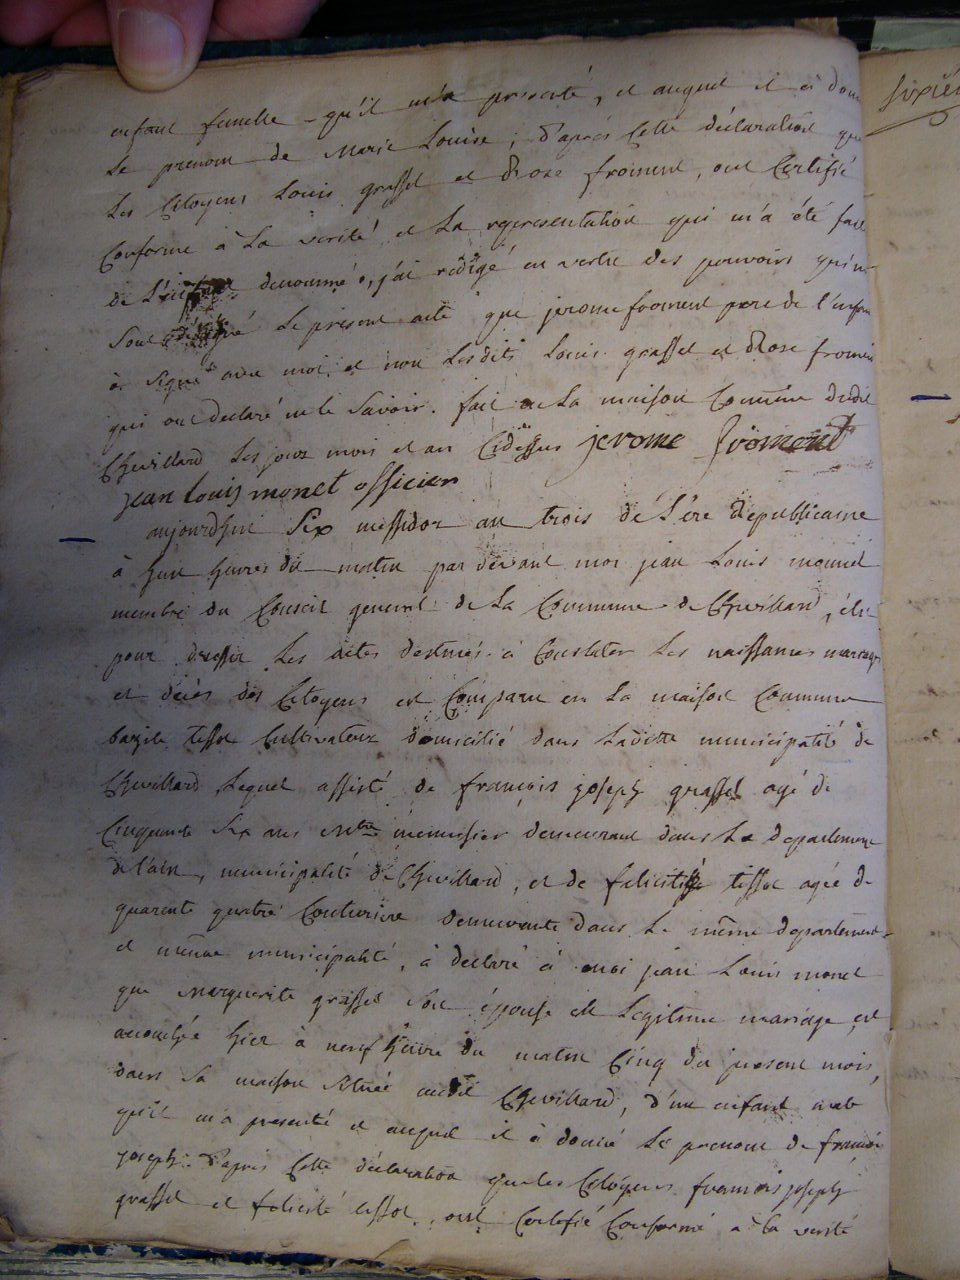 enfant femelle - qu'il m'a presenté, et auquel il a donné
Le prenom de Marie Louise; d'après Cette déclaration que
Les Citoyens Louis grassel et Rose froment, ont Certifié
Conforme à La verité et La representation qui m'a été faite
de L'enfant denommé, j'ai redigé en vertu des pouvoirs qui m
Sont délégué Le present acte que jerome froment pere de l'enfan
à signé avec moi et non Lesdits Louis grassel et Rose froment
qui ont declaré ne le Savoir. fait en La maison Commune dudit
Chevillard Les jour mois et an Cidessus jerome froment
jean louis monet officier
aujourdhui Six messidor an trois de L'ère Republicaine
à huit heures du matin par devant moi jean Louis monet
membre du Conseil general de La Commune de Chevillard, élu
pour dresser Les actes destinés à Constater Les naissances mariages
et décès des Citoyens est Comparu en La maison Commune
bazile tissot Cultivateur domicilié dans Laditte municipalité de
Chevillard Lequel assisté de françois joseph grassel agé de
Cinquante Six ans menuisier demeurant dans Le departement
de l'ain, municipalité de Chevillard, et de felicité tissot agée de
quarente quatre Couturière demeurante dans Le même departement
et même municipalité, à declaré à moi jean Louis monet
que Marguerite grassel son épouse en Legitime mariage est
accouchée hier à neuf heure du matin Cinq du present mois,
dans sa maison située audit Chevillard, d'un enfant male
qu'il m'a presenté et auquel il à donné Le prenom de françois
joseph. d'après Cette déclaration que les Citoyens francois joseph
grassel et felicité tissot, ont Certifié Conforme a la verité
Sixiem